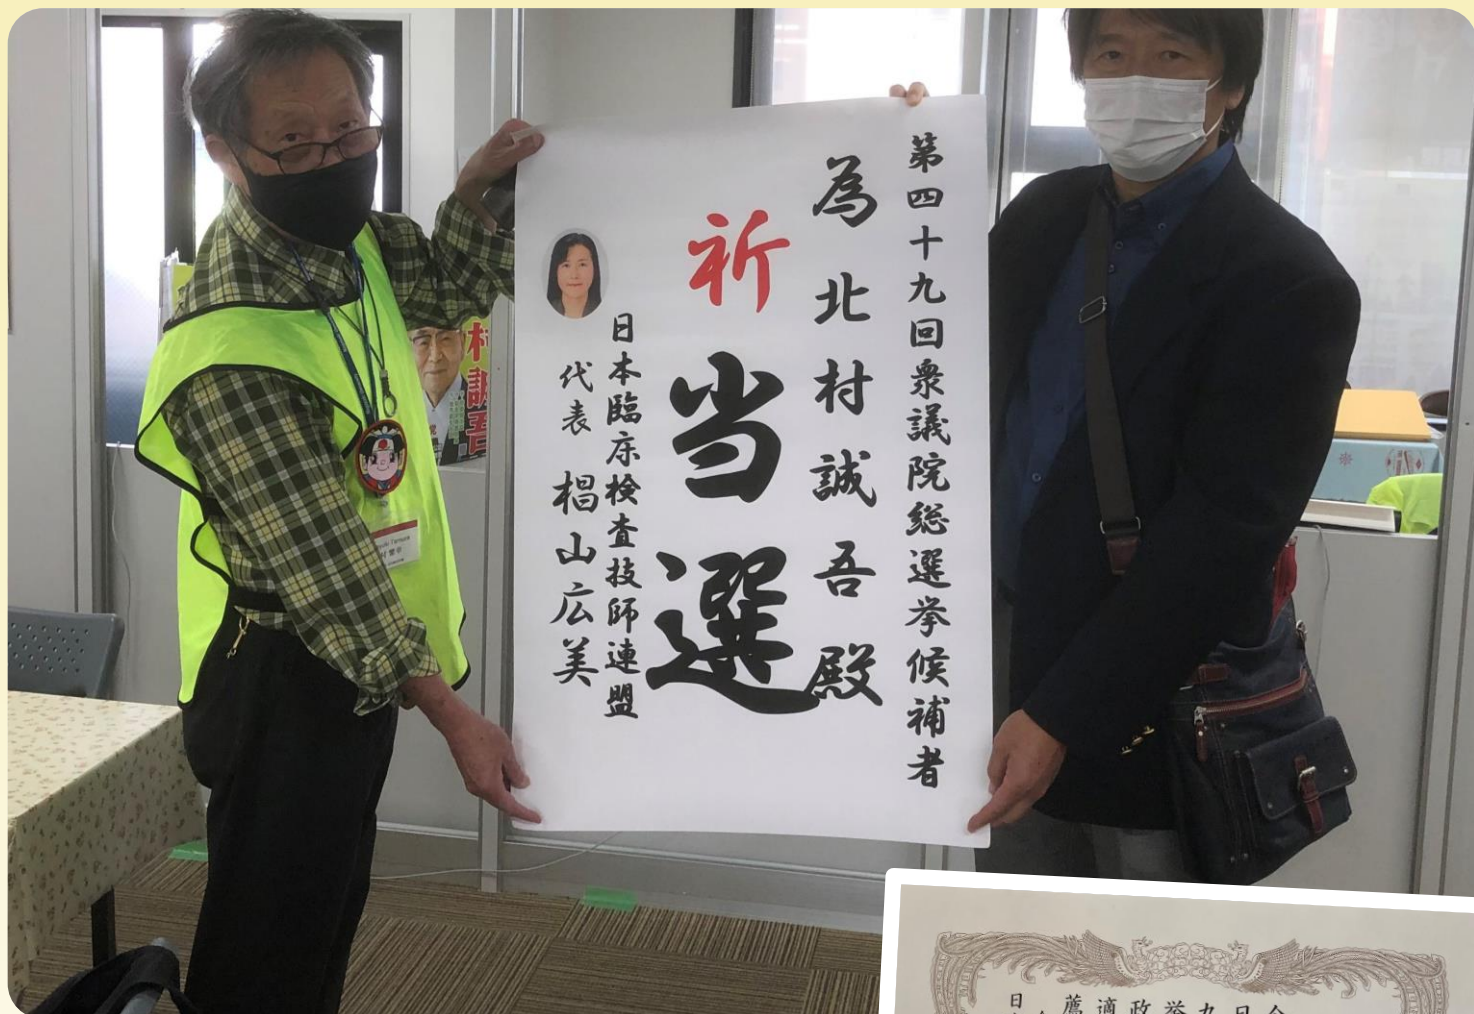 第四十九回衆議院総選挙候補者
為北村誠吾殿
祈当選
日本臨床検査技師連盟
代表 椙山広美
村誠吾